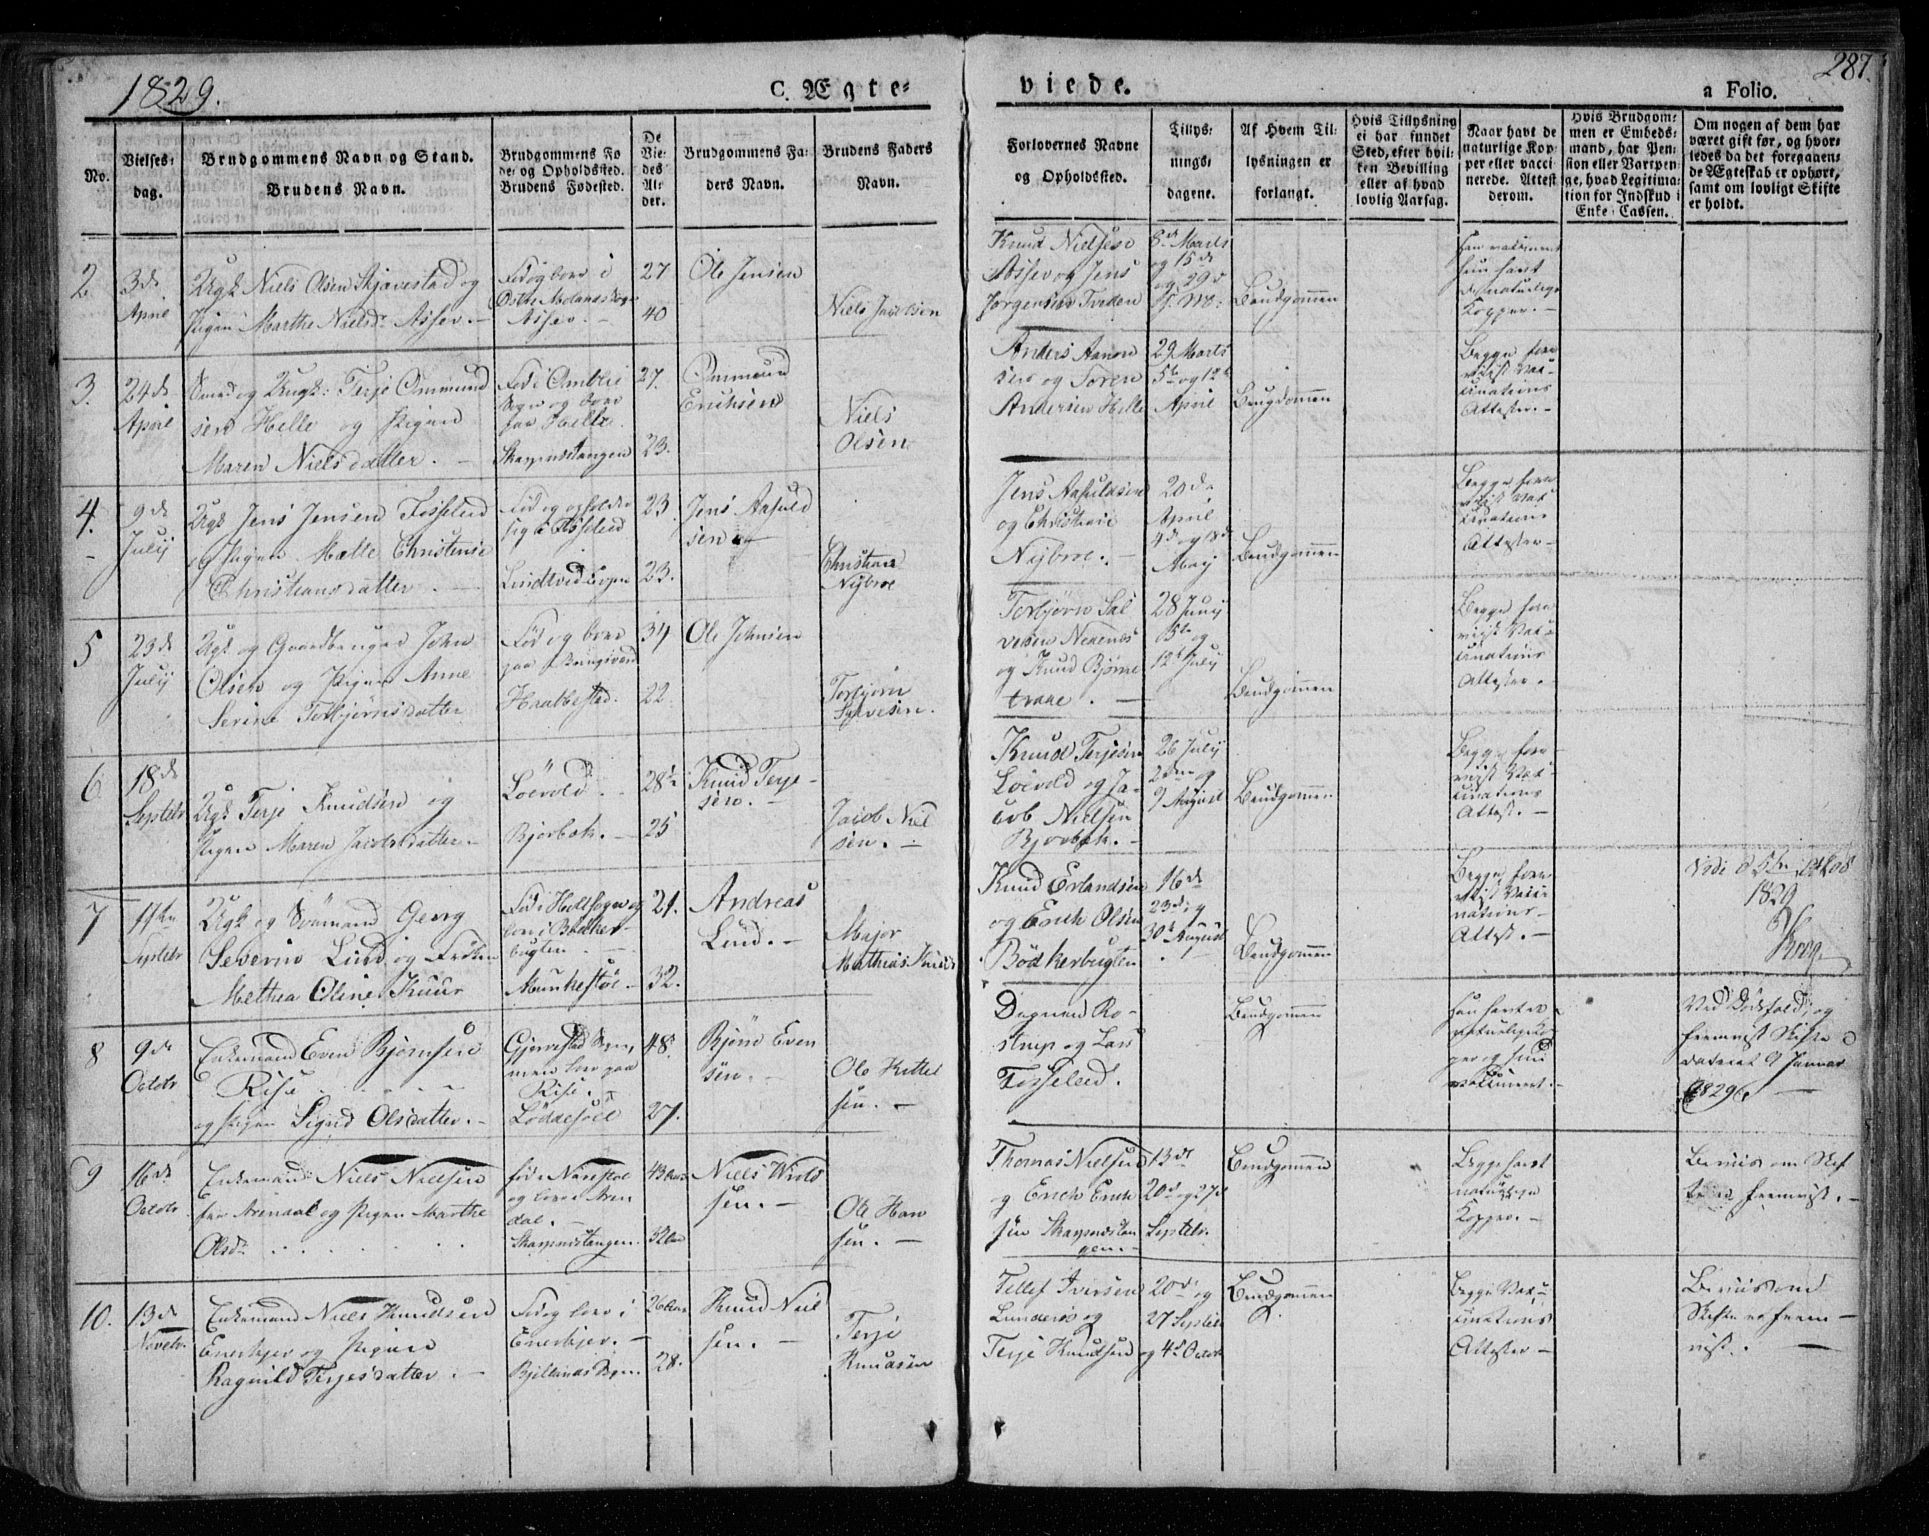 1829.
C. Ægte=
viede.
287.
a Folio.
No.
Vielses=
dag.
Brudgommens Navn og Stand.
Brudens Navn.
Brudgommens Fø
de= og Opholdsted.
Brudens Fødested.
De
Vie=
des
Al=
der.
Brudgommens Fa=
ders Navn.
Brudens Faders
Navn.
Forlovernes Navne
og Opholdsted.
Tillys=
nings=
dagene.
Af Hvem Til=
lysningen er
forlangt.
Hvis Tillysning
ei har fundet
Sted, efter hvil=
ken Bevilling
eller af hvad
lovlig Aarsag.
Naar havt de
naturlige Kop=
per eller vacci=
nerede. Attest
derom.
Hvis Brudgom=
men er Embeds=
mand, har Pen=
sion eller Vartpen=
ge, hvad Legitima=
tion for Indskud i
Enke=Cassen.
Om nogen af dem har
været gift før, og hvor=
ledes da det foregaaen=
de Ægteskab er ophørt,
samt om lovligt Skifte
er holdt.
2
3de
April
Ugk Niels Olsen Skjævestad og
Pigen Marthe Nielsd. Assev.
Østre Molands Sogn
Assev.
27
40
Ole Jensen
Niels Jacobsen
Knud Nielsen
Assev og Jens
Jørgensen Tveden
8de Marts
og 15de
og 29d
Brudgommen
naturlige
Kopper.
3.
24de
April
og Ungk: Terje Ommund
sen Helle og Pigen
Maren Nielsdatter.
Sogn og boer
paa Helle.
Skarpnestangen
27.
23.
Ommund
Erichsen
Niels
Olsen
Anders Aanon
sen og Søren
Andersen Helle
29 Marts
5te og 12te
April
Brugdommen
Begge fore
viist Vac=
cinations
Attester.
4.
9de
July
Ugk Jens Jensen Fosseleed
og Pigen Mælle Christense
Christiansdatter.
Fød og opholder
sig i Fosseleed
Landtvedsogn
23
23.
Jens Aasuld
sen
Christian
Nybroe
Jens Aasuldsen
og Christian
Nybroe.
20de
April
4de og
May
Brudgommen
Begge fore
viist Vac
cinations
Attester
5
23de
July
Ugk og Gaardbruger John
Olsen og Pigen Anne
Serine Torbjørnsdatter
Fød og boer
paa Bringsvær
Haabbestad.
34
22
Ole Johnsen
Torbjørn
Salvesen.
Torbjørn Sal
vesen Nedenes
og Knud Bjørne
traae.
28 Juny
5te og
12te July
Brudgommen
Begge fore
viist Vac=
cinations
Attester.
6
18de
Septebr
Ugk Terje Knudsen og
Pigen Maren Jacobsdatter.
Løevold.
Bjorbek.
28½
25
Knud Terje-
sen.
Jacob Niel
sen.
Knud Terjesen
Løevold og Ja-
cob Nielsen
Bjorbek.
26 July
2den og
9 August
Brudgommen
Begge fore
viist Vac-
cinations
Attest.
7
Septebr
Ugk og Sømand Georg
Severin Lund og Frøken
Methea Oline Knur
Fød i Holtsogn og
boer i Bødker-
bugten
Munkestøe
21.
32.
Andreas
Lund.
Major
Mathias
Knud Erlandsen
og Erich Olsen
Bødkerbugten
16de
23de og
30te August
Brudgommen
Begge fore
viist Vacci
nations
Attest.
1829
8
9de
Octobr
Enkemand Even Bjørnsen
Rise
og Pigen Sigrid Olsdatter.
Gjerrestad Sogn,
men boer paa
Risse.
Løddesøel
48.
27.
Bjørn Even
sen.
Ole Kittel
sen.
Dagmund Ro-
strup og Lars
Fosseleed.
Brudgommen
Han havt de
naturlige Ko-
per og hun
vaccineret.
Ved Dødsfald, og
fremviist Skifte
dateret 9 Januar
1829.
9
16de
Octobr
Enkemand Niels Nielsen
fra Arendal og Pigen Marthe
Olsd.
fød i
og boer i Aren
dal.
Skarpnestangen.
43 Aar
Niels Wrold
sen.
Ole Han
sen.
Thomas Nielsen
og Erich Erich
sen Skarpnestan
gen.
13de
20de og 27de
Septebr.
Brudgommen
Begge havt
naturlige
Kopper.
Beviis om Skif
te er fremvist.
10.
13de
Novebr.
Enkemand Niels Knudsen
Enerkjer og Pigen
Ragnild Terjesdatter.
Fød og boer i
Enerkjer.
Bjellands Sogn.
26 Aar
28.
Knud Niel
sen.
Terje
Knudsen
Tellef Iversen
Lunderø og
Terje Knudsen
20de og
27 Septebr
og 4de Octob
Brudgommen
Begge Vac
cinations
Attester
Beviis om
Skifte er frem-
vist.